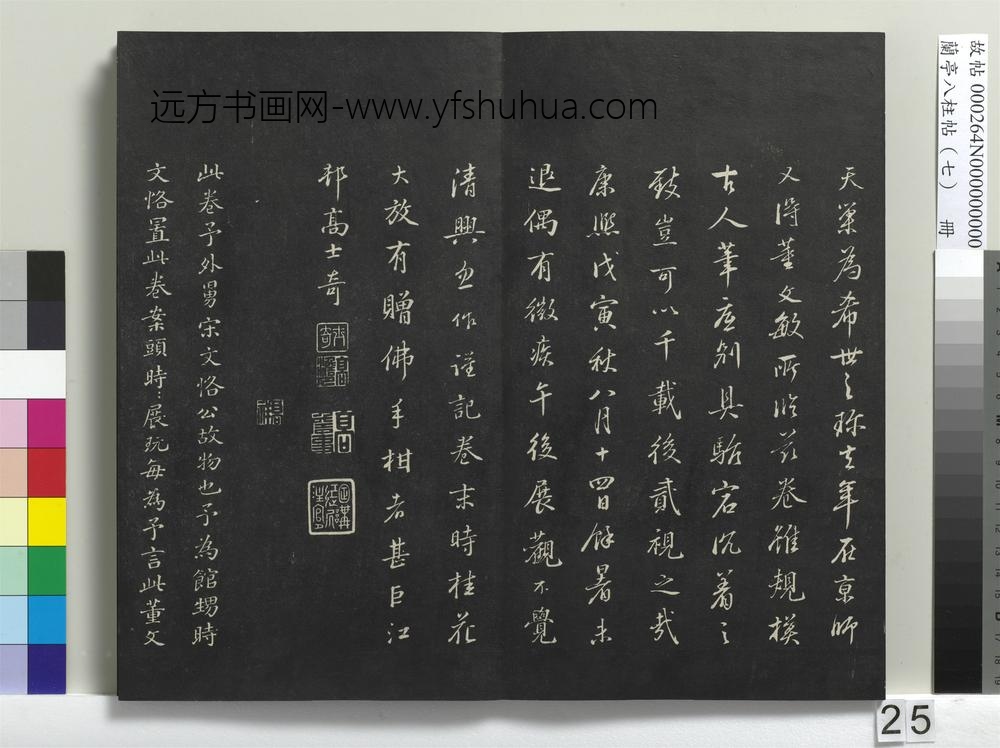 远方书画网-www.yfshuhua.com
故帖000264N000000000
蘭亭八柱帖（七） 冊
天策為希世之珎去年在京師
又得董文敏所临茲卷雖規橅
古人筆意別具駘宕沉着之
致豈可以千載後貳視之哉
康熙戊寅秋八月十四日餘暑未
退偶有微疾午後展觀不覺
清興忽作謹記卷末時桂花
大放有贈佛手柑者甚巨江
邨高士奇
此卷予外舅宋文恪公故物也予為館甥時
文恪置此卷案頭時:展玩每為予言此董文
25